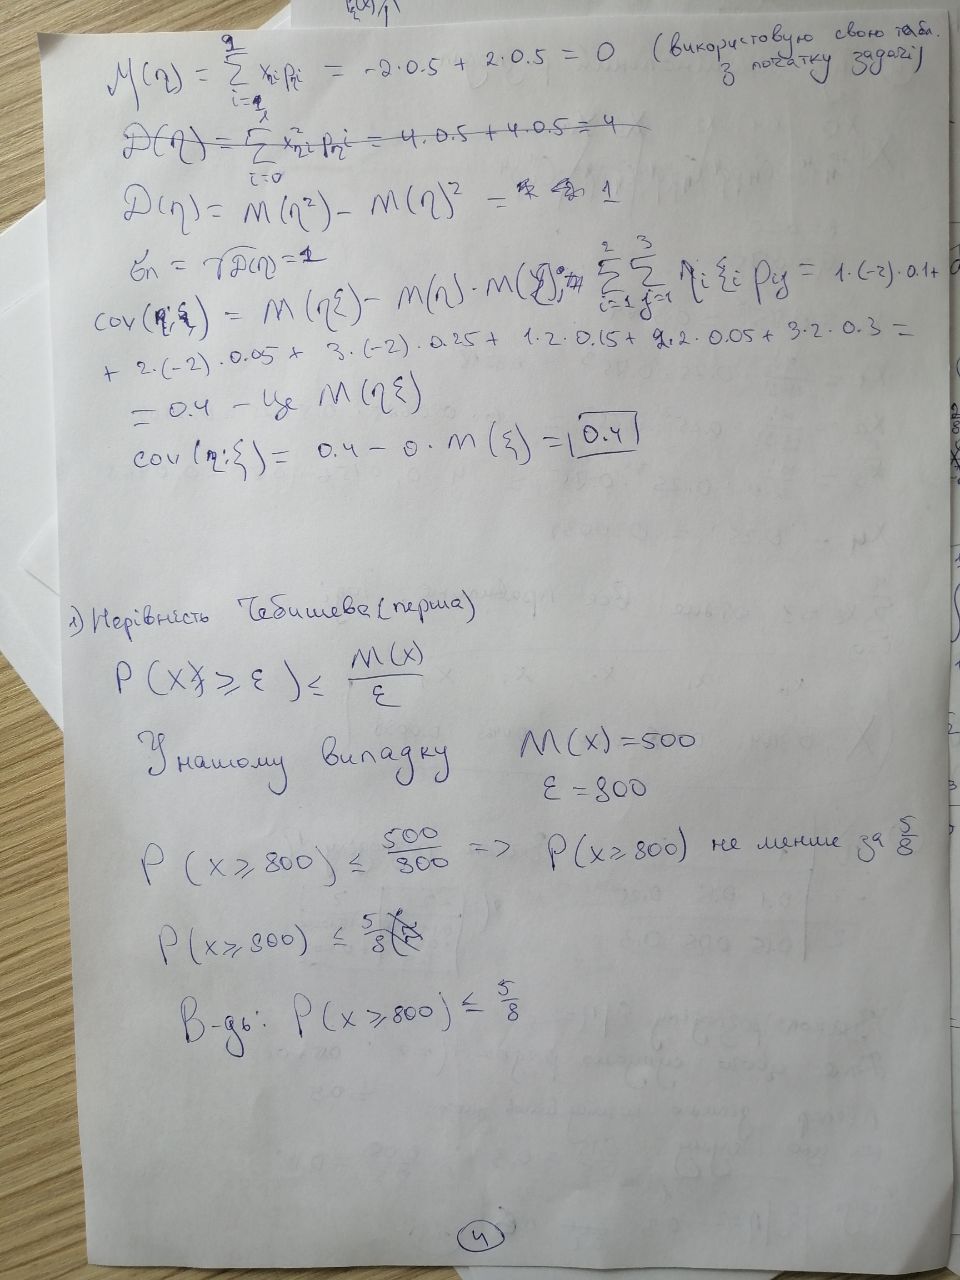 M(η) = Σ x_ηi p_ηi = -2·0.5 + 2·0.5 = 0 (використовую свою табл.
з початку задачі)
D(η) = Σ x²_ηi p_ηi = 4·0.5 + 4·0.5 = 4
i=0
D(η) = M(η²) - M(η)² = 1
σn = √D(η) = 1
cov(η;ξ) = M(ηξ) - M(η)·M(ξ); Σ Σ η_i ξ_i p_ij = 1·(-2)·0.1+
+ 2·(-2)·0.05 + 3·(-2)·0.25 + 1·2·0.15 + 2·2·0.05 + 3·2·0.3 =
= 0.4 - це M(ηξ)
cov(η;ξ) = 0.4 - 0·M(ξ) = 0.4
1) Нерівність Чебишева (перша)
P(X ≥ ε) ≤ M(x)/ε
У нашому випадку M(x) = 500
ε = 800
P(x ≥ 800) ≤ 500/800 => P(x ≥ 800) не менше за 5/8
P(x ≥ 800) ≤ 5/8
В-дь: P(x ≥ 800) ≤ 5/8
4